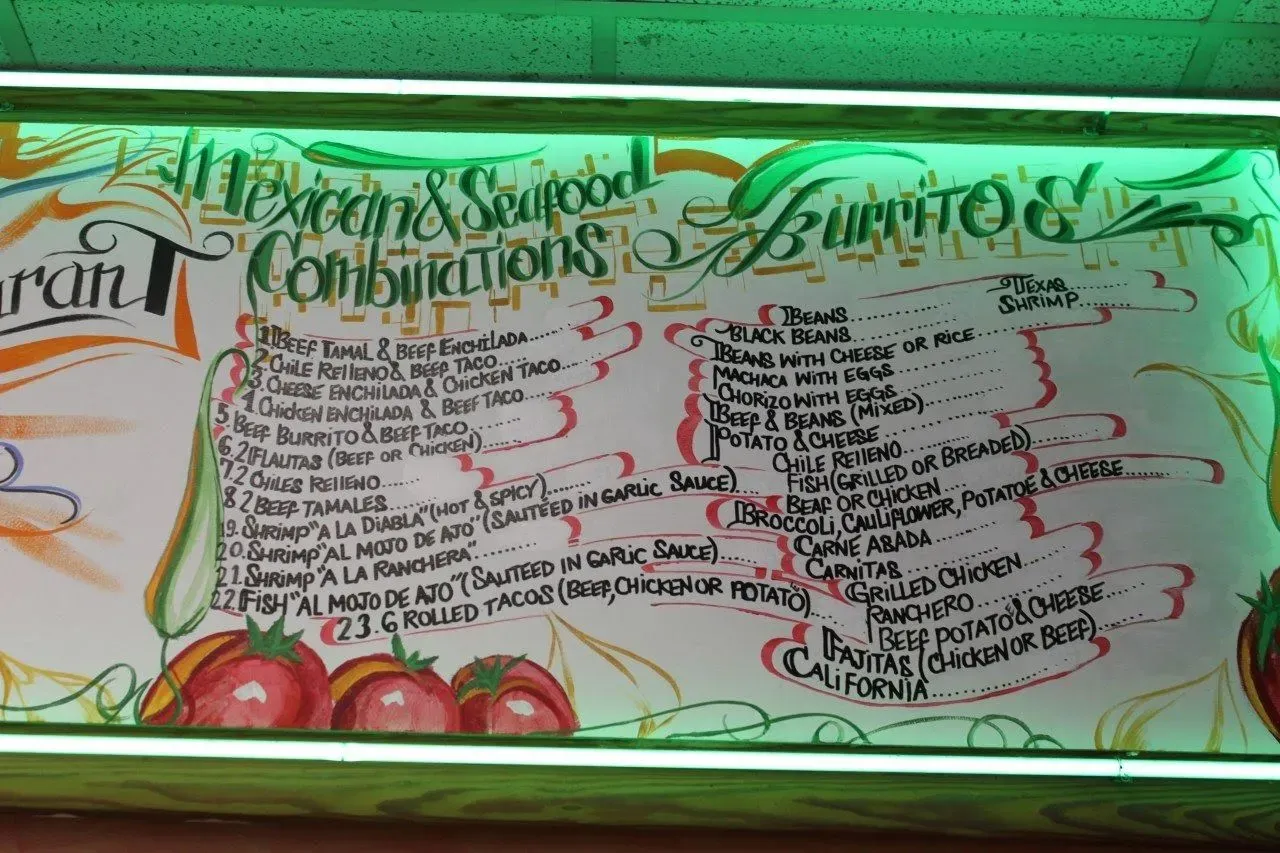 ranT
Mexican & Seafood
Combinations
1. Beef Tamal & Beef Enchilada......
2. Chile Relleno & Beef Taco
3. Cheese Enchilada & Chicken Taco....
4. Chicken Enchilada & Beef Taco
5. Beef Burrito & Beef Taco.......
6. 2 Flautas (Beef or Chicken)
7. 2 Chiles Relleno......
8. 2 Beef Tamales......
19. Shrimp "A la Diabla" (Hot & Spicy).......
20. Shrimp "Al Mojo de Ajo" (Sauteed in Garlic Sauce)....
21. Shrimp "A la Ranchera"........
22. Fish "Al Mojo de Ajo" (Sauteed in Garlic Sauce)......
23. 6 Rolled Tacos (Beef, Chicken or Potato)....
Burritos
Beans...............
Black Beans............
Beans with Cheese or Rice
Machaca with Eggs
Chorizo with Eggs
Beef & Beans (Mixed)
Potato & Cheese
Chile Relleno
Fish (Grilled or Breaded)
Beaf or Chicken
Broccoli, Cauliflower, Potatoe & Cheese
Carne Asada
Carnitas
Grilled Chicken
Ranchero
Beef Potato & Cheese
Fajitas (Chicken or Beef)
California
Texas
Shrimp